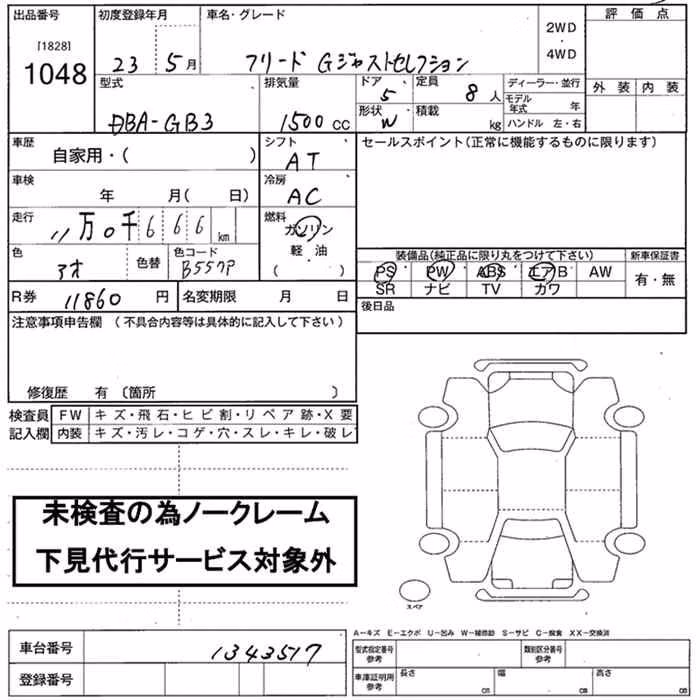 出品番号 初度登録年月 車名・グレード 評価点
[1828]
1048
23 5月 フリード Gジャストセレクション 2WD ・ 4WD
外装 内装
型式 排気量 ドア・ 定員 ディーラー・並行
DBA-GB3 1500 CC 5 8人 モデル年式 年
形状 W 積載 kg ハンドル 左・右
車歴 シフト セールスポイント(正常に機能するものに限ります)
自家用・( ) AT
車検 冷房
年 月( 日) AC
走行 燃料
11万0千666km ガソリン
軽・油
( )
色 色替 色コード 装備品(純正品に限り丸をつけて下さい) 新車保証書
アオ B557P PS PW ABS エアB AW 有・無
SR ナビ TV カワ
R券 11860 円 名変期限 月 日 後日品
注意事項申告欄 (不具合内容等は具体的に記入して下さい)
修復歴 有 〔箇所 〕
検査員 FW キズ・飛石・ヒビ割・リペア跡・X要
記入欄 内装 キズ・汚レ・コゲ・穴・スレ・キレ・破レ
未検査の為ノークレーム
下見代行サービス対象外
スペア
A-キズ E-エクボ U-凹み W-補修跡 S-サビ C-腐食 XX-交換済
車台番号 1343517 型式指定番号参考 類別区分番号参考
登録番号 車庫証明用参考 長さ cm 幅 cm 高さ cm